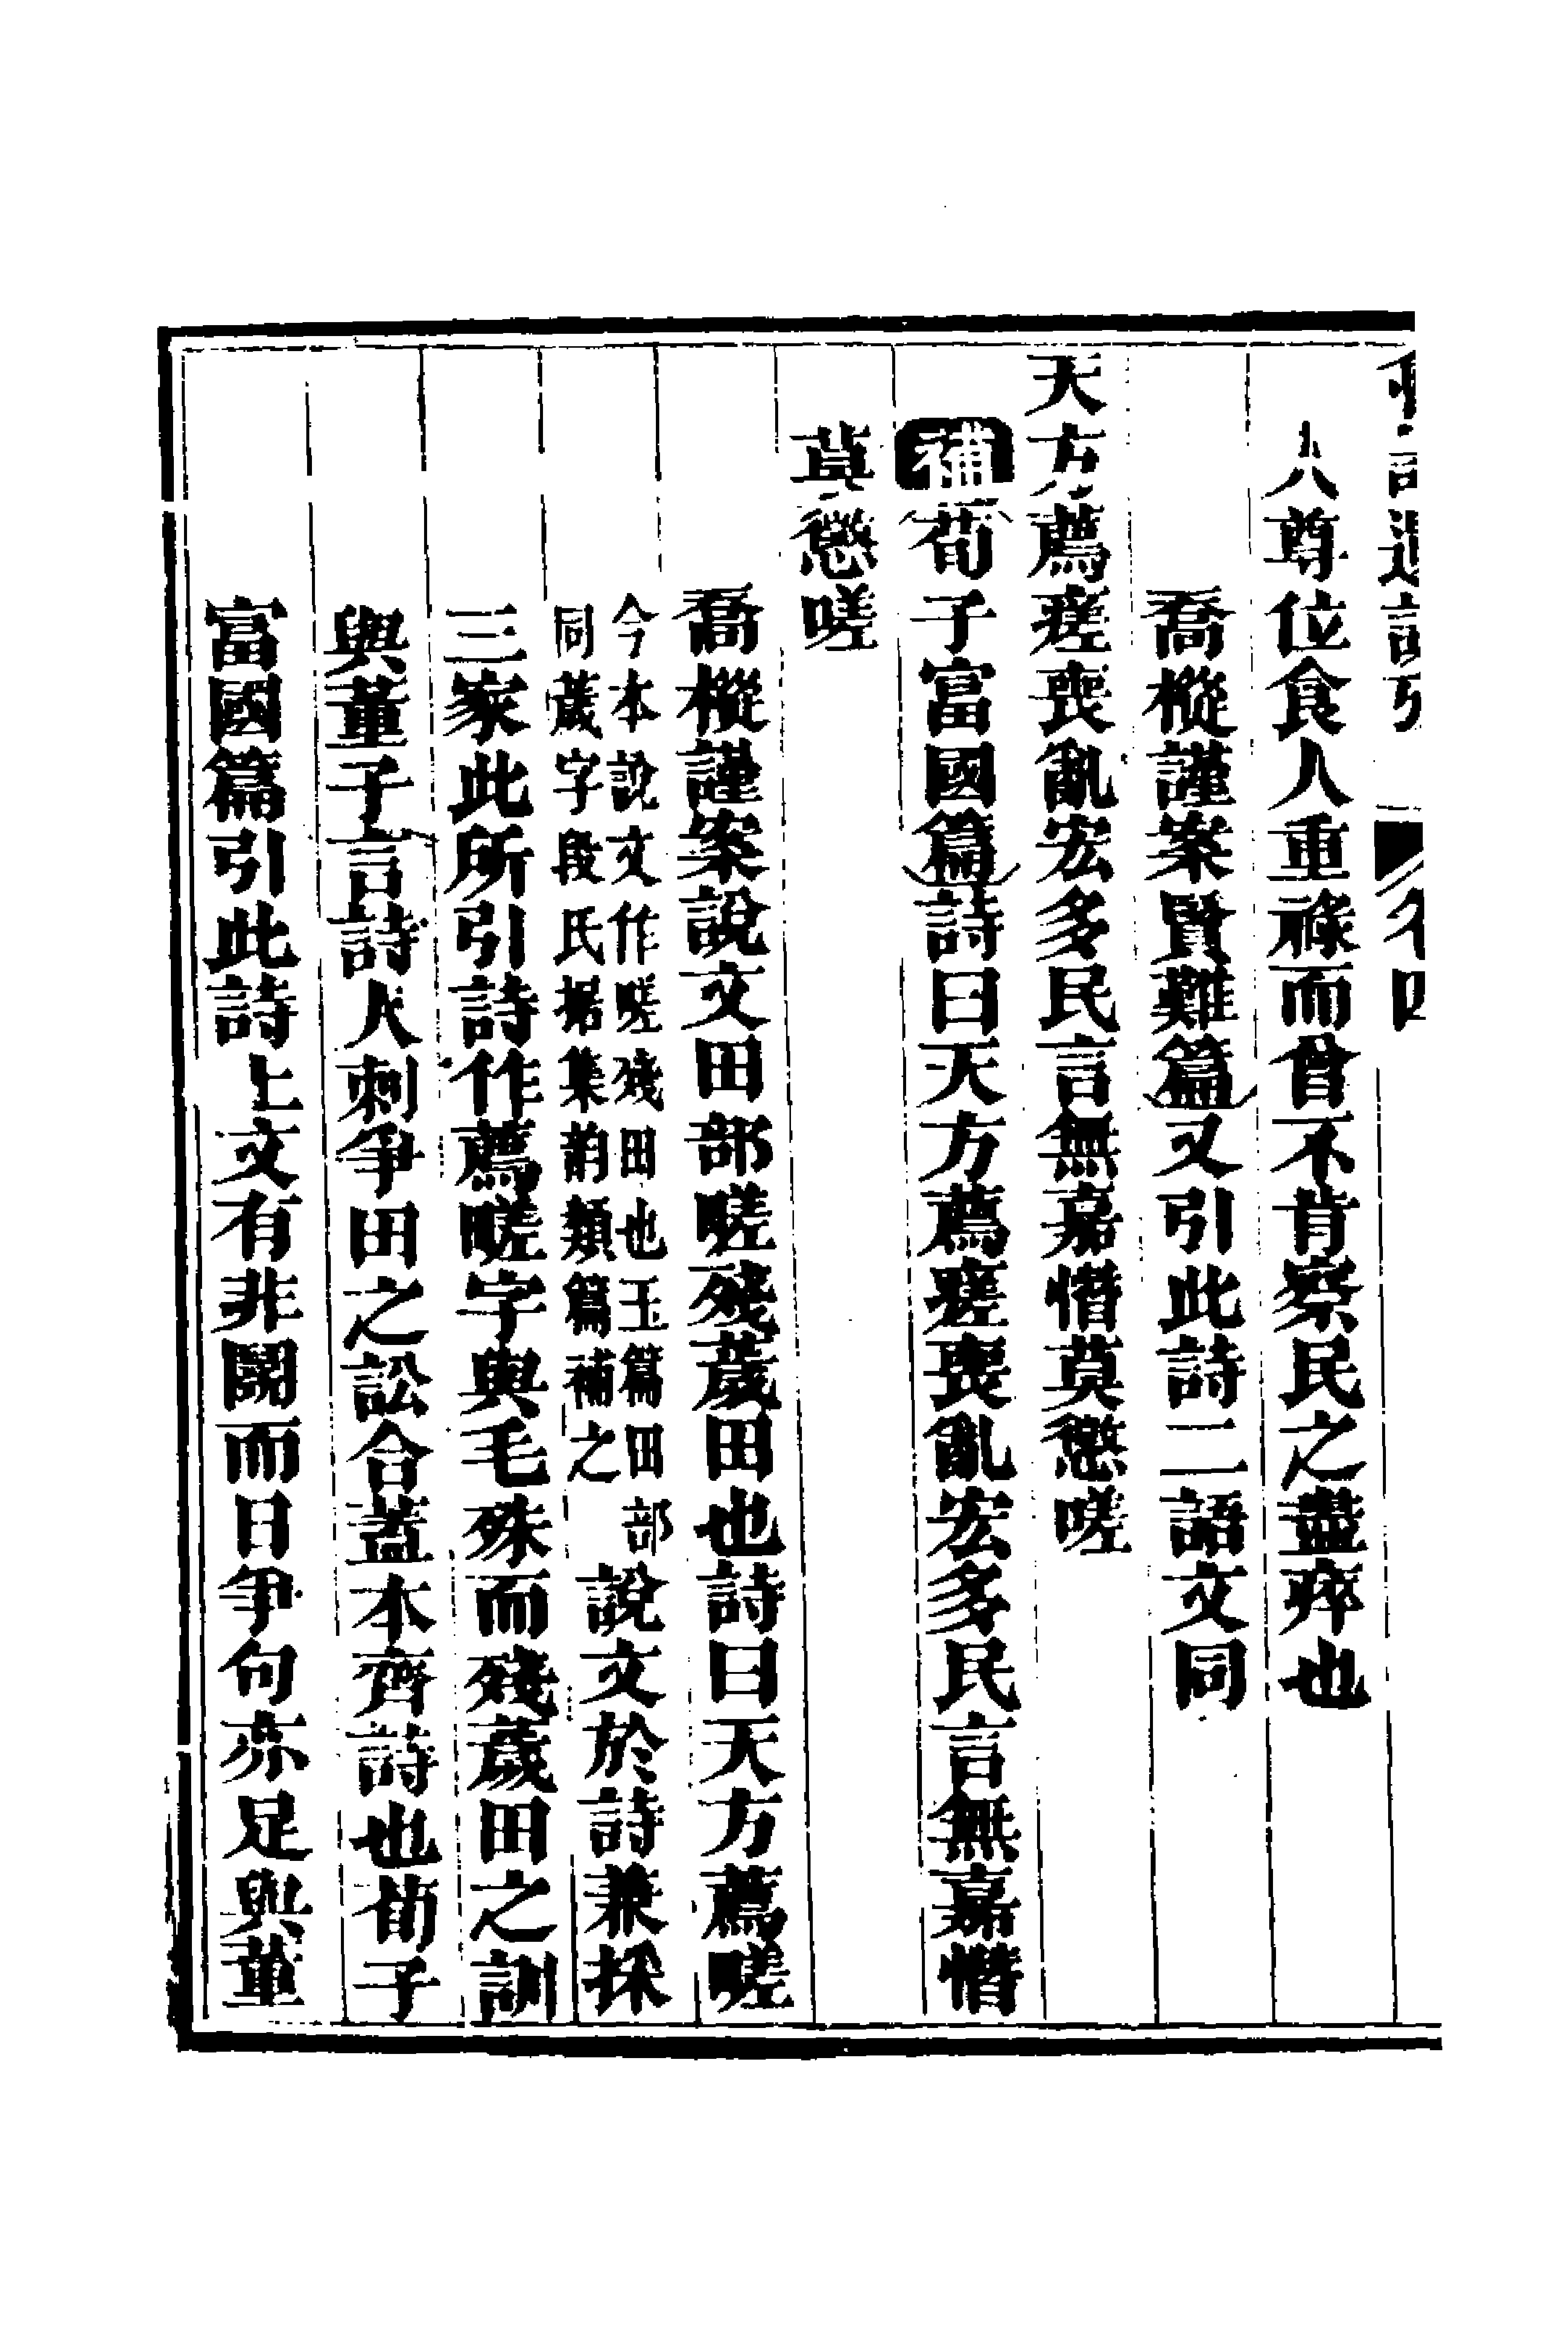 人尊位食人重祿而曾不肯察民之盡瘁也
喬樅謹案賢難篇又引此詩二語文同
天方薦瘥喪亂宏多民言無嘉憯莫懲嗟
補荀子富國篇詩曰天方薦瘥喪亂宏多民言無嘉憯
莫懲嗟
喬樅謹案說文田部㽨殘薉田也詩曰天方薦㽨
今本說文作㽨殘田也玉篇田部
同薉字段氏據集韵類篇補之
說文於詩兼採
三家此所引詩作薦㽨字與毛殊而殘薉田之訓
與董子言詩人刺爭田之訟合蓋本齊詩也荀子
富國篇引此詩上文有非鬬而日爭句亦足與董